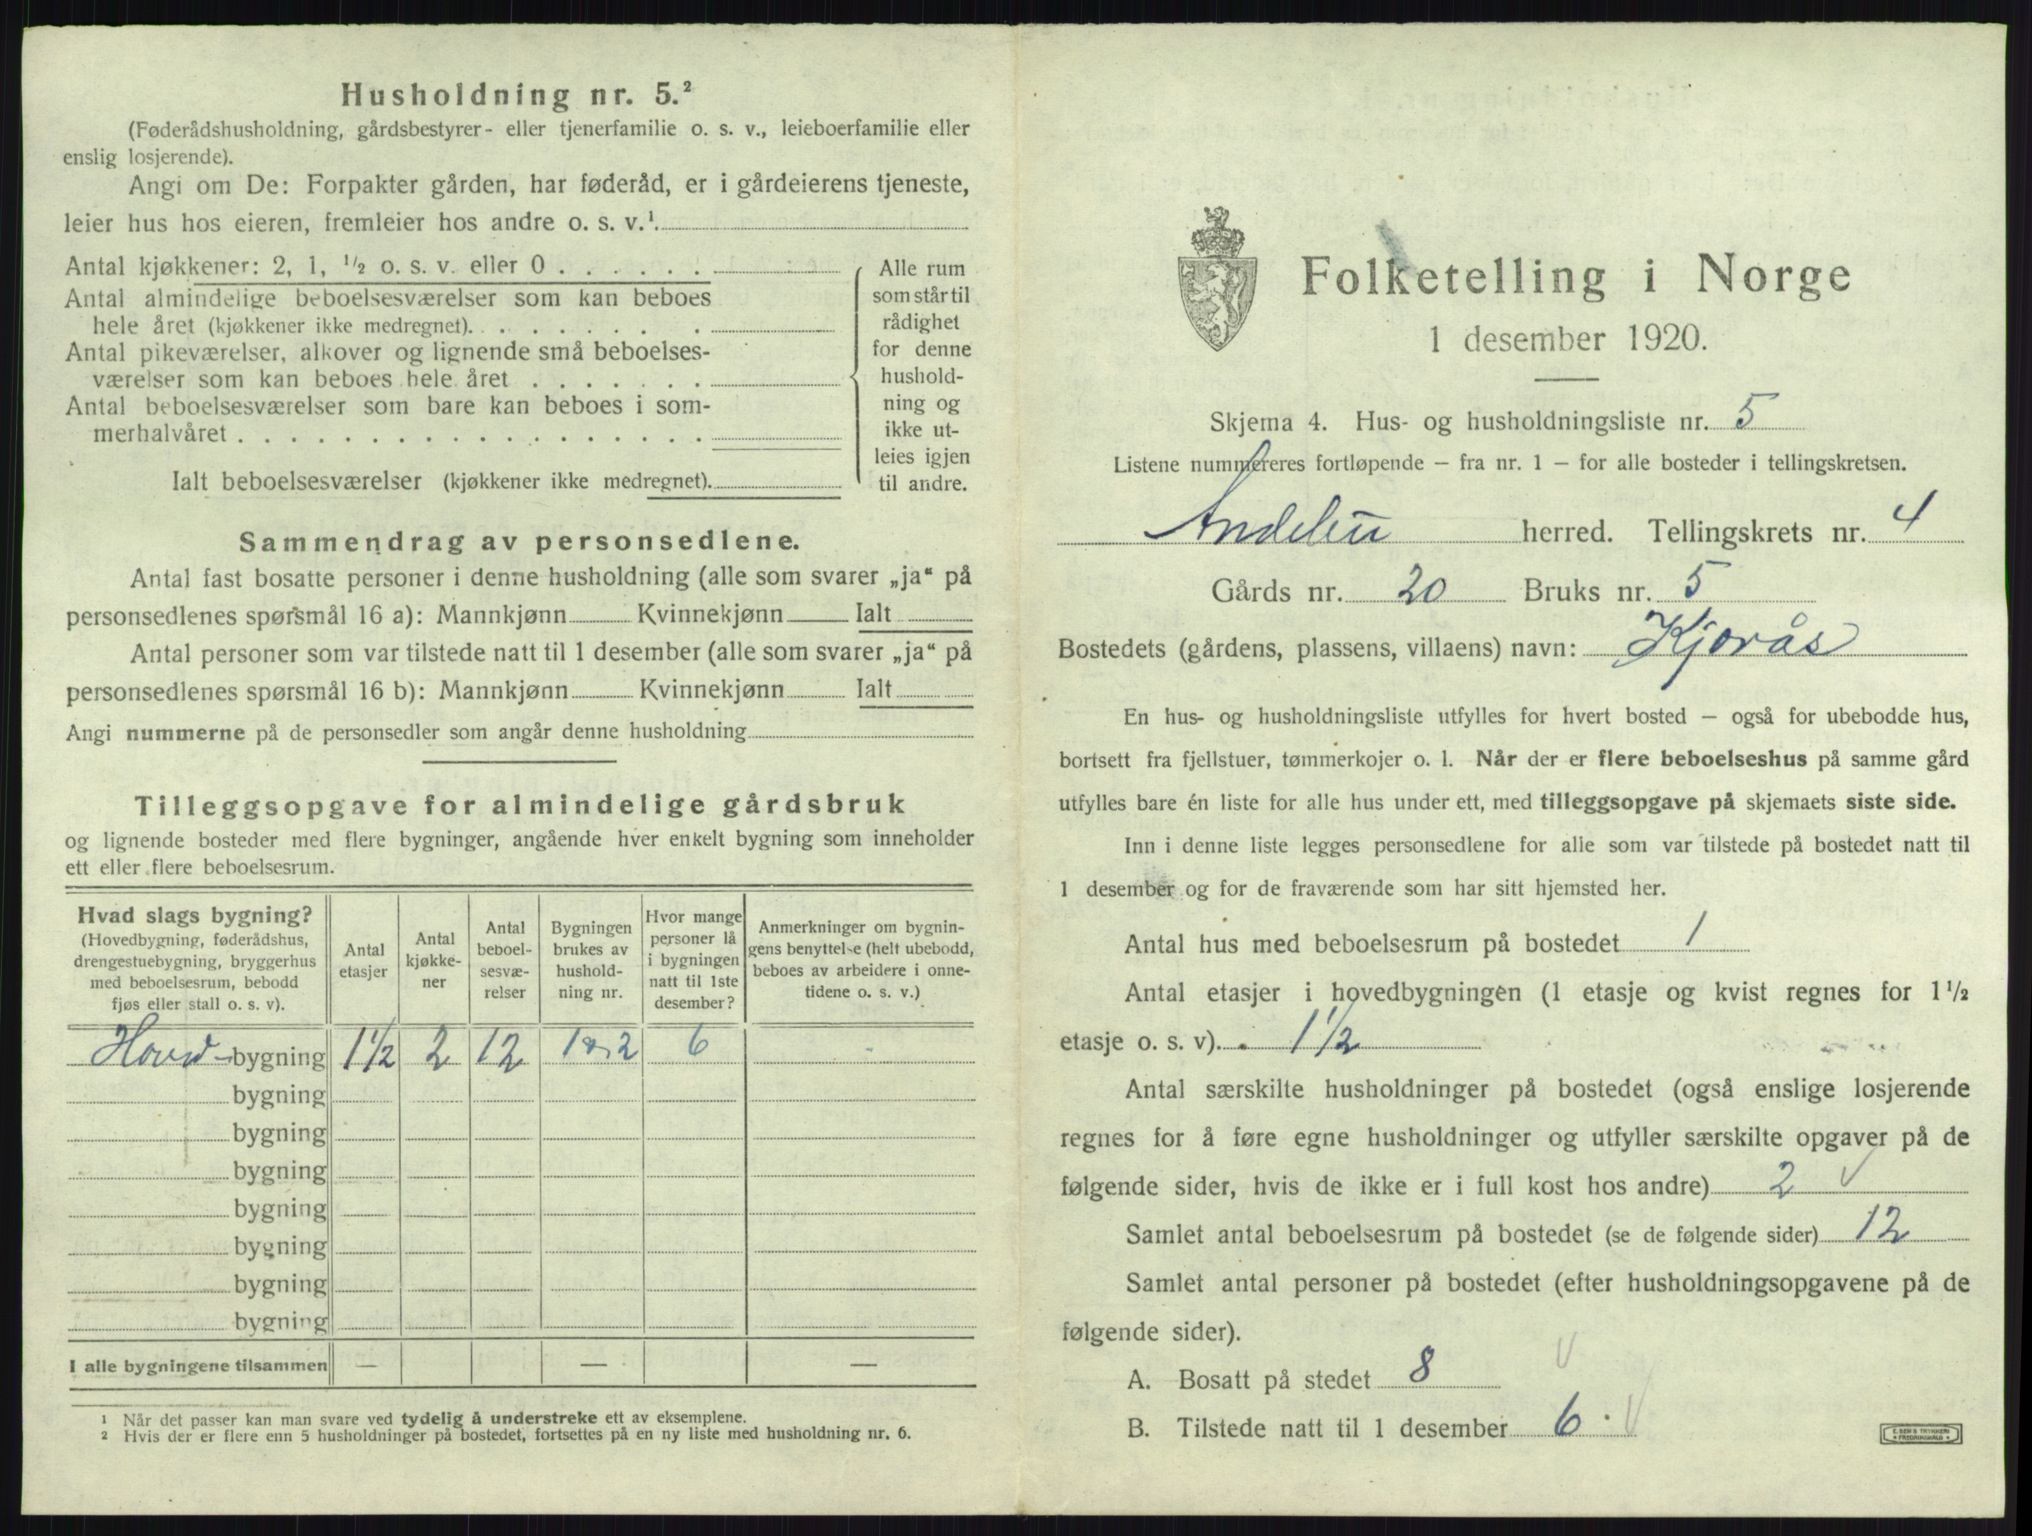 Husholdning nr. 5.²
(Føderådshusholdning, gårdsbestyrer- eller tjenerfamilie o. s. v., leieboerfamilie eller
enslig losjerende).
Angi om De: Forpakter gården, har føderåd, er i gårdeierens tjeneste,
leier hus hos eieren, fremleier hos andre o. s. v.¹.
Antal kjøkkener: 2, 1, ½ o. s. v. eller 0 . . . . . .
Antal almindelige beboelsesværelser som kan beboes
hele året (kjøkkener ikke medregnet). . . . . . . . .
Antal pikeværelser, alkover og lignende små beboelses-
værelser som kan beboes hele året . . . . . . .
Antal beboelsesværelser som bare kan beboes i som-
merhalvåret . . . . . . . . . . . . . . . . . .
Ialt beboelsesværelser (kjøkkener ikke medregnet).
Alle rum
som står til
rådighet
for denne
hushold-
ning og
ikke ut-
leies igjen
til andre.
Sammendrag av personsedlene.
Antal fast bosatte personer i denne husholdning (alle som svarer „ja“ på
personsedlenes spørsmål 16 a): Mannkjønn Kvinnekjønn Ialt
Antal personer som var tilstede natt til 1 desember (alle som svarer „ja“ på
personsedlenes spørsmål 16 b): Mannkjønn Kvinnekjønn Ialt
Angi nummerne på de personsedler som angår denne husholdning
Tilleggsopgave for almindelige gårdsbruk
og lignende bosteder med flere bygninger, angående hver enkelt bygning som inneholder
ett eller flere beboelsesrum.
Hvad slags bygning?
(Hovedbygning, føderådshus,
drengestuebygning, bryggerhus
med beboelsesrum, bebodd
fjøs eller stall o. s. v).
Antal
etasjer
Antal
kjøkke-
ner
Antal
beboel-
sesvæ-
relser
Bygningen
brukes av
hushold-
ning nr.
Hvor mange
personer lå
i bygningen
natt til 1ste
desember?
Anmerkninger om bygnin-
gens benyttelse (helt ubebodd,
beboes av arbeidere i onne-
tidene o. s. v.)
Hovedbygning 1½ 2 12 1 & 2 6 -
bygning
bygning
bygning
bygning
bygning
bygning
bygning
I alle bygningene tilsammen — — —
¹ Når det passer kan man svare ved tydelig å understreke ett av eksemplene.
² Hvis der er flere enn 5 husholdninger på bostedet, fortsettes på en ny liste med husholdning nr. 6.
Folketelling i Norge
1 desember 1920.
Skjema 4. Hus- og husholdningsliste nr. 5
Listene nummereres fortløpende – fra nr. 1 – for alle bosteder i tellingskretsen.
Andebu herred. Tellingskrets nr. 4
Gårds nr. 20 Bruks nr. 5
Bostedets (gårdens, plassens, villaens) navn: Kjorås
En hus- og husholdningsliste utfylles for hvert bosted – også for ubebodde hus,
bortsett fra fjellstuer, tømmerkojer o. l. Når der er flere beboelseshus på samme gård
utfylles bare én liste for alle hus under ett, med tilleggsopgave på skjemaets siste side.
Inn i denne liste legges personsedlene for alle som var tilstede på bostedet natt til
1 desember og for de fraværende som har sitt hjemsted her.
Antal hus med beboelsesrum på bostedet 1
Antal etasjer i hovedbygningen (1 etasje og kvist regnes for 1½
etasje o. s. v). 1½
Antal særskilte husholdninger på bostedet (også enslige losjerende
regnes for å føre egne husholdninger og utfyller særskilte opgaver på de
følgende sider, hvis de ikke er i full kost hos andre) 2
Samlet antal beboelsesrum på bostedet (se de følgende sider) 12
Samlet antal personer på bostedet (efter husholdningsopgavene på de
følgende sider).
A. Bosatt på stedet 8
B. Tilstede natt til 1 desember 6